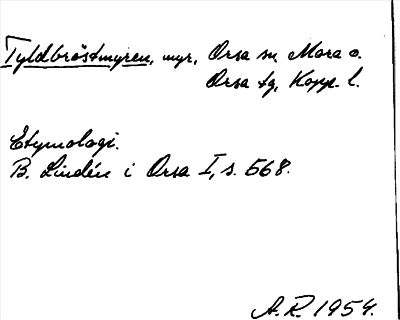 Tyldbröstmyren, myr, Orsa sn, Mora o.
Orsa tg, Kopp. l.
Etymologi.
B. Lindén i Orsa I, s. 568.
A.R. 1954.